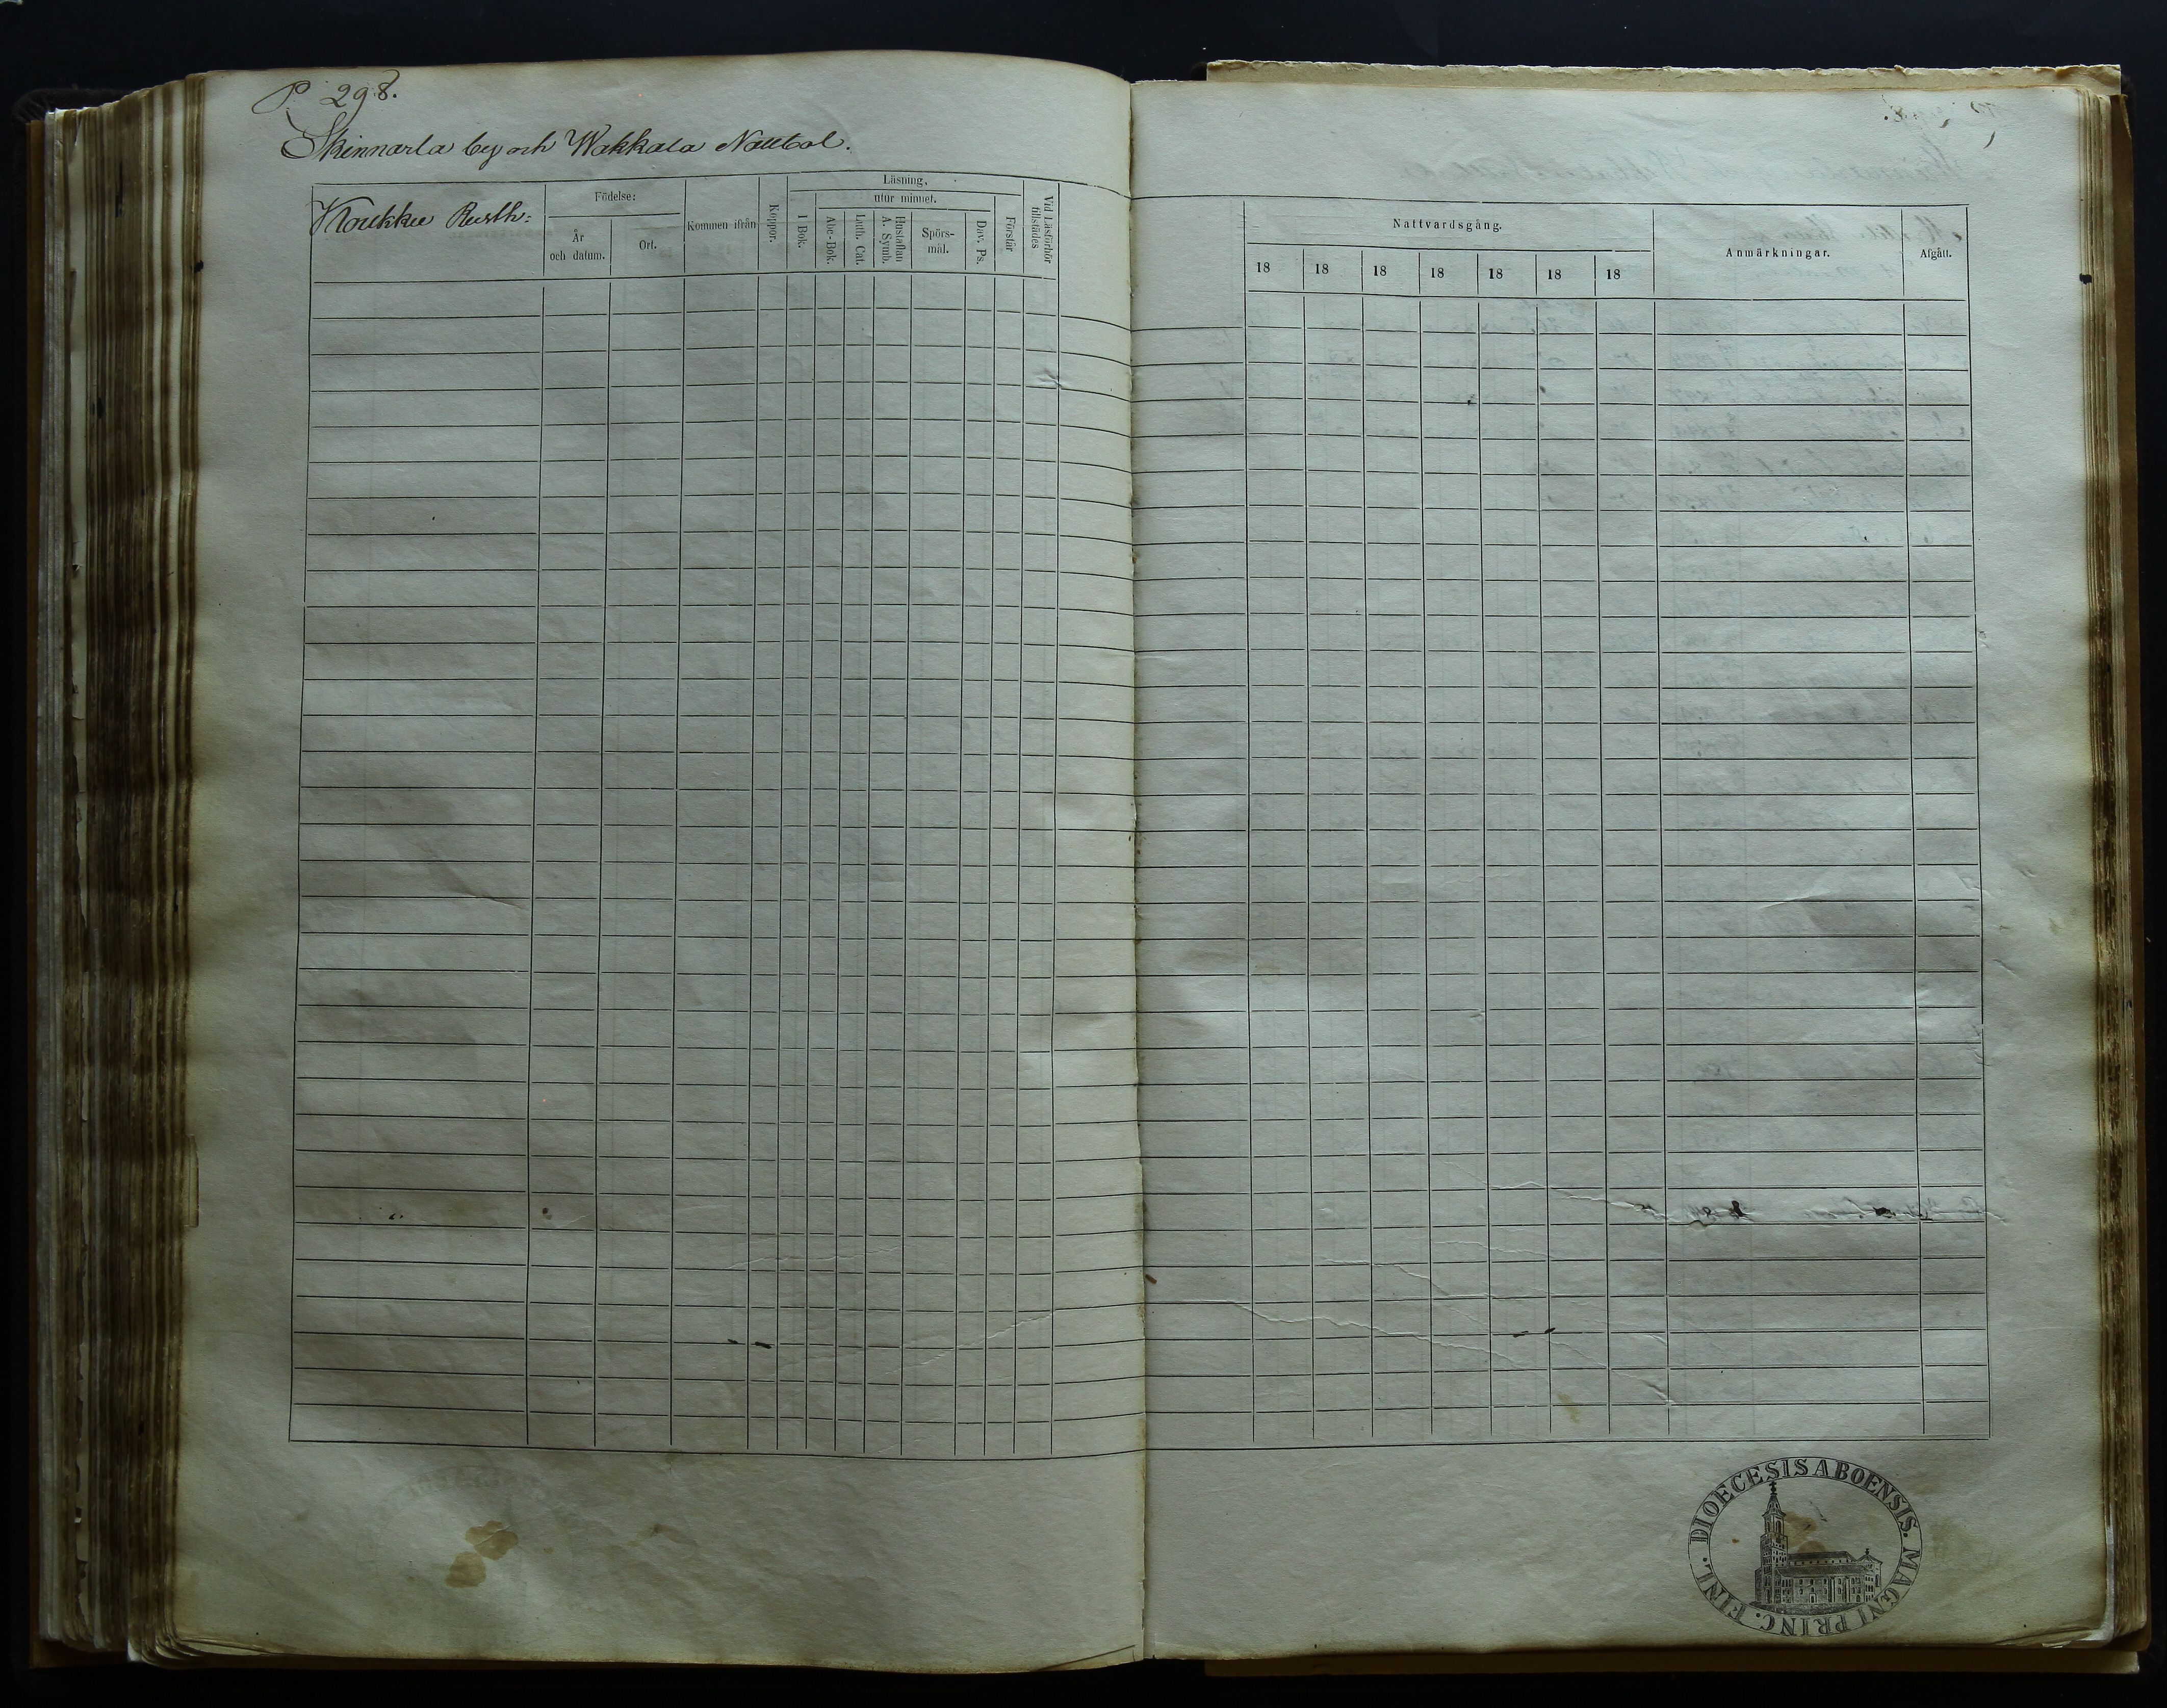 P. 298.
Skinnarla by och Wakkala Nattbol.
Koukku Rusth:
Födelse:
År
och datum.
Ort.
Kommen ifrån
Koppor.
Läsning,
I Bok.
utur minnet.
Abc-Bok.
Luth. Cat.
Hustaflan
A. Symb.
Spörs-
mål.
Dav. Ps.
Förstår
Vid Läsförhör
tillstädes
Nattvardsgång.
18 18 18 18 18 18 18
Anmärkningar.
Afgått.
DIOECESIS ABOENSIS. MAGNI PRINC. FINL.